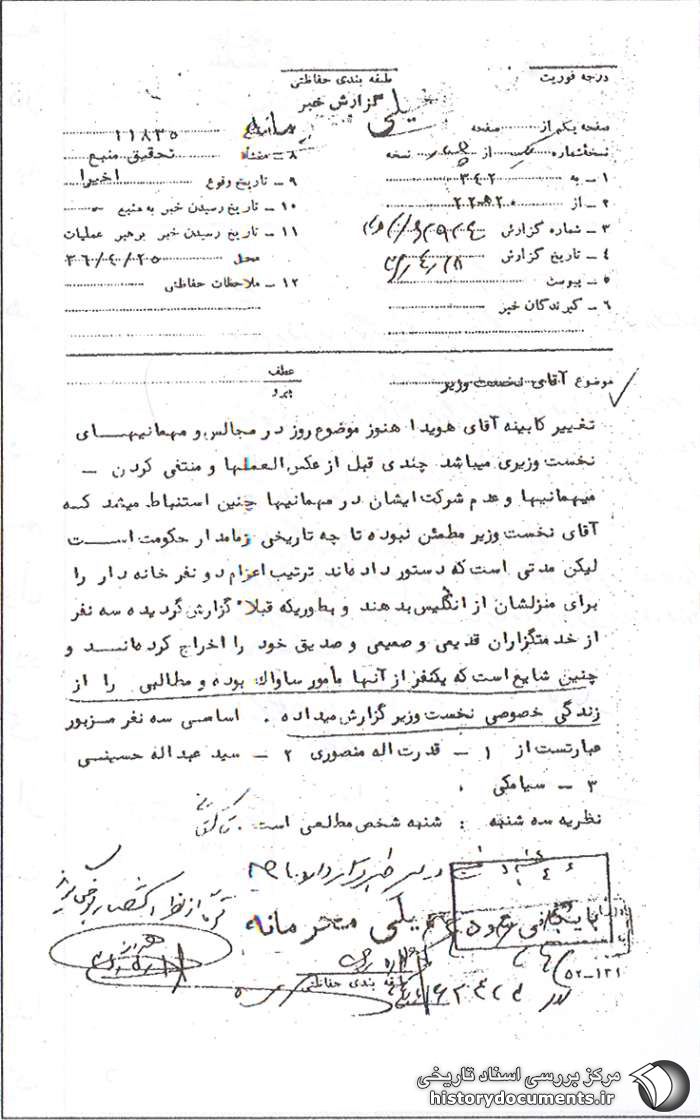 درجه فوریت
طبقه بندی حفاظتی
گزارش خبر
خیلی محرمانه
صفحه یکم از صفحه
نسخهٔشماره یک از چهار نسخه
۱ ـ به ۳۴۲
۲ ـ از ۲۲ ه ۲۰
۳ ـ شماره گزارش
۴ ـ تاریخ گزارش ۳۶/۴/۲۸
۵ ـ پیوست
۶ ـ گیرندگان خبر
۱۱۸۳۵
۸ ـ منشاء تحقیق منبع
۹ ـ تاریخ وقوع اخیرا
۱۰ ـ تاریخ رسیدن خبر به منبع
۱۱ ـ تاریخ رسیدن خبر برهبر عملیات
محل ۳۶/۴/۲۵
۱۲ ـ ملاحظات حفاظتی
موضوع آقای نخست وزیر
عطف
پیرو
تغییر کابینه آقای هویدا هنوز موضوع روز در مجالس و مهمانیهای
نخست وزیری میباشد چندی قبل از عکس العملها و منتفی کردن ـ
میهمانیها و عدم شرکت ایشان در مهمانیها چنین استنباط میشد که
آقای نخست وزیر مطمئن نبوده تا چه تاریخی زمامدار حکومت است
لیکن مدتی است که دستور داده‌اند ترتیب اعزام دو نفر خانه دار را
برای منزلشان از انگلیس بدهند و بطوریکه قبلا" گزارش گردیده سه نفر
از خدمتگزاران قدیمی و صمیمی و صدیق خود را اخراج کرده‌اند و
چنین شایع است که یکنفر از آنها مأمور ساواك بوده و مطالبی را از
زندگی خصوصی نخست وزیر گزارش میداده . اسامی سه نفر مزبور
عبارتست از ۱ ـ قدرت اله منصوری ۲ ـ سید عبداله حسینی
۳ ـ سیامکی .
نظریه سه شنبه : شنبه شخص مطلعی است .
بایگانی شود
خیلی محرمانه
طبقه بندی حفاظتی
۵۲-۱۳۱
مرکز بررسی اسناد تاریخی
historydocuments.ir